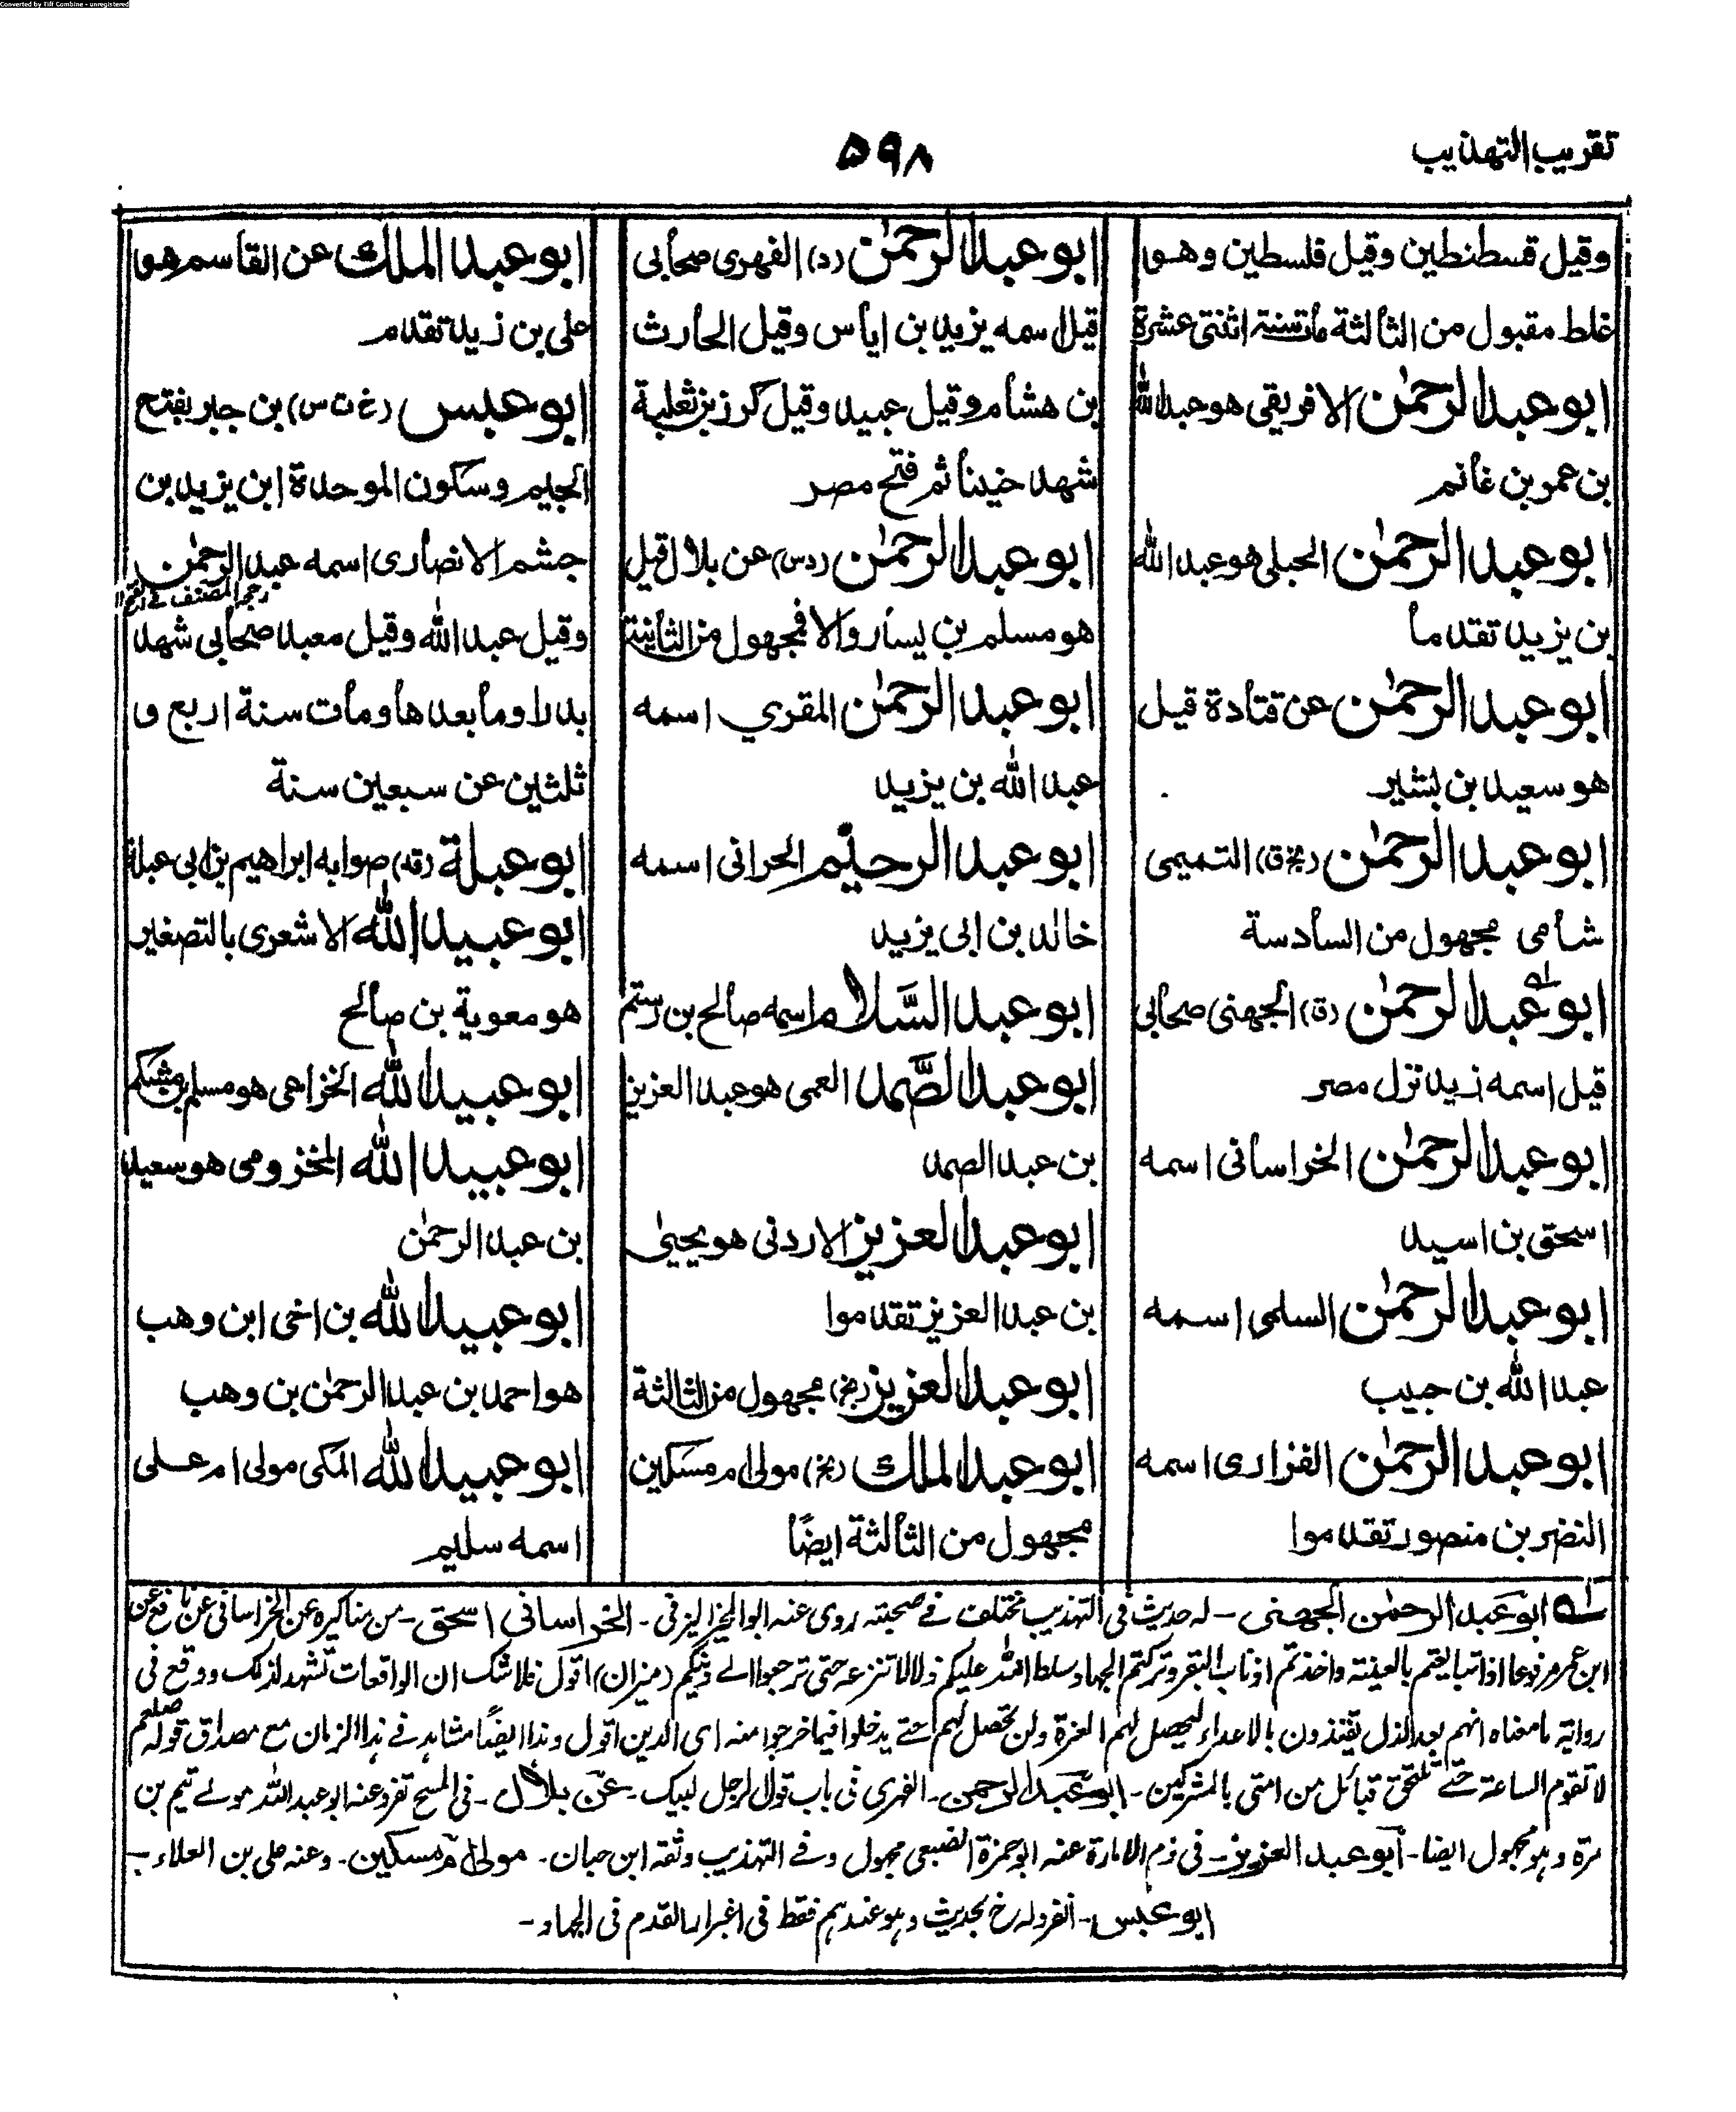 Converted by Tiff Combine - unregistered
تقريب التهذيب
۵۹۸
وقيل قسطنطين وقيل فلسطين وهو
غلط مقبول من الثالثة مات سنة اثنتى عشرة
ابو عبد الرحمٰن الافريقى هو عبد الله
بن عمر بن غانم
ابو عبد الرحمٰن الحبلى هو عبد الله
بن يزيد تقدما
ابو عبد الرحمٰن عن قتادة قيل
هو سعيد بن بشير
ابو عبد الرحمٰن (بخ ق) التميمى
شامى مجهول من السادسة
ابو عبد الرحمٰن (ق) الجهنى صحابى
قيل اسمه زيد نزل مصر
ابو عبد الرحمٰن الخراسانى اسمه
اسحق بن اسيد
ابو عبد الرحمٰن السلمى اسمه
عبد الله بن حبيب
ابو عبد الرحمٰن الفزارى اسمه
النضر بن منصور تقدموا
ابو عبد الرحمٰن (د) الفهرى صحابى
قيل اسمه يزيد بن اياس وقيل الحارث
بن هشام وقيل عبيد وقيل كرز بن ثعلبة
شهد حنينا ثم فتح مصر
ابو عبد الرحمٰن (دس) عن بلال قيل
هو مسلم بن يسار والا فمجهول من الثانية
ابو عبد الرحمٰن المقرى اسمه
عبد الله بن يزيد
ابو عبد الرحيم الحرانى اسمه
خالد بن ابى يزيد
ابو عبد السَّلام اسمه صالح بن رستم
ابو عبد الصَّمد العمى هو عبد العزيز
بن عبد الصمد
ابو عبد العزيز الاردنى هو يحيىٰ
بن عبد العزيز تقدموا
ابو عبد العزيز (بخ) مجهول من الثالثة
ابو عبد الملك (بخ) مولى ام مسكين
مجهول من الثالثة ايضًا
ابو عبد الملك عن القاسم هو
على بن زيد تقدم
ابو عبس (خ ت س) بن جبر بفتح
الجيم وسكون الموحدة ابن يزيد بن
جشم الانصارى اسمه عبد الرحمٰن
وقيل عبد الله وقيل معبد صحابى شهد
بدرا وما بعدها ومات سنة اربع و
ثلثين عن سبعين سنة
ابو عبلة (قد) صوابه ابراهيم بن ابى عبلة
ابو عبيد الله الاشعرى بالتصغير
هو معوية بن صالح
ابو عبيد الله الخزاعى هو مسلم بن مشكم
ابو عبيد الله المخزومى هو سعيد
بن عبد الرحمٰن
ابو عبيد الله بن اخى ابن وهب
هو احمد بن عبد الرحمٰن بن وهب
ابو عبيد الله المكى مولى ام على
اسمه سليم
له ابو عبد الرحمٰن الجهنى - له حديث فى التهذيب مختلف فے صحبته روى عنه ابو الخير اليزنى - الخراسانى اسحق - من مناكيره عن الخراسانى عن نافع عن
ابن عمر مرفوعا اذا تبايعتم بالعينة واخذتم اذناب البقر وتركتم الجهاد سلط الله عليكم ذلا لا تنزعه حتى ترجعوا الے دينكم (ميزان) اقول فلا شك ان الواقعات تشهد لذلك ووقع فى
رواية ما معناه انهم بعد الذل يقتدون بالاعداء ليحصل لهم العزة ولن تحصل لهم حتے يدخلوا فيما خرجوا منه اى الدين اقول وهذا ايضًا مشاهد فے هذا الزمان مع مصداق قوله صلعم
لا تقوم الساعة حتے تلتحق قبائل من امتى بالمشركين - ابو عبد الرحمن - الفهرى فى باب قول الرجل لبيك - عن بلال - فى المسح تفرد عنه ابو عبد الله مولے تيم بن
مرة وهو مجهول ايضا - ابو عبد العزيز - فى ذم الامارة عنه ابو حمزة الضبعى مجهول وفے التهذيب وثقه ابن حبان - مولى ام مسكين - وعنه على بن العلاء -
ابو عبس - انفرد له خ بحديث وهو عندهم فقط فى اغبرار القدم فى الجهاد -